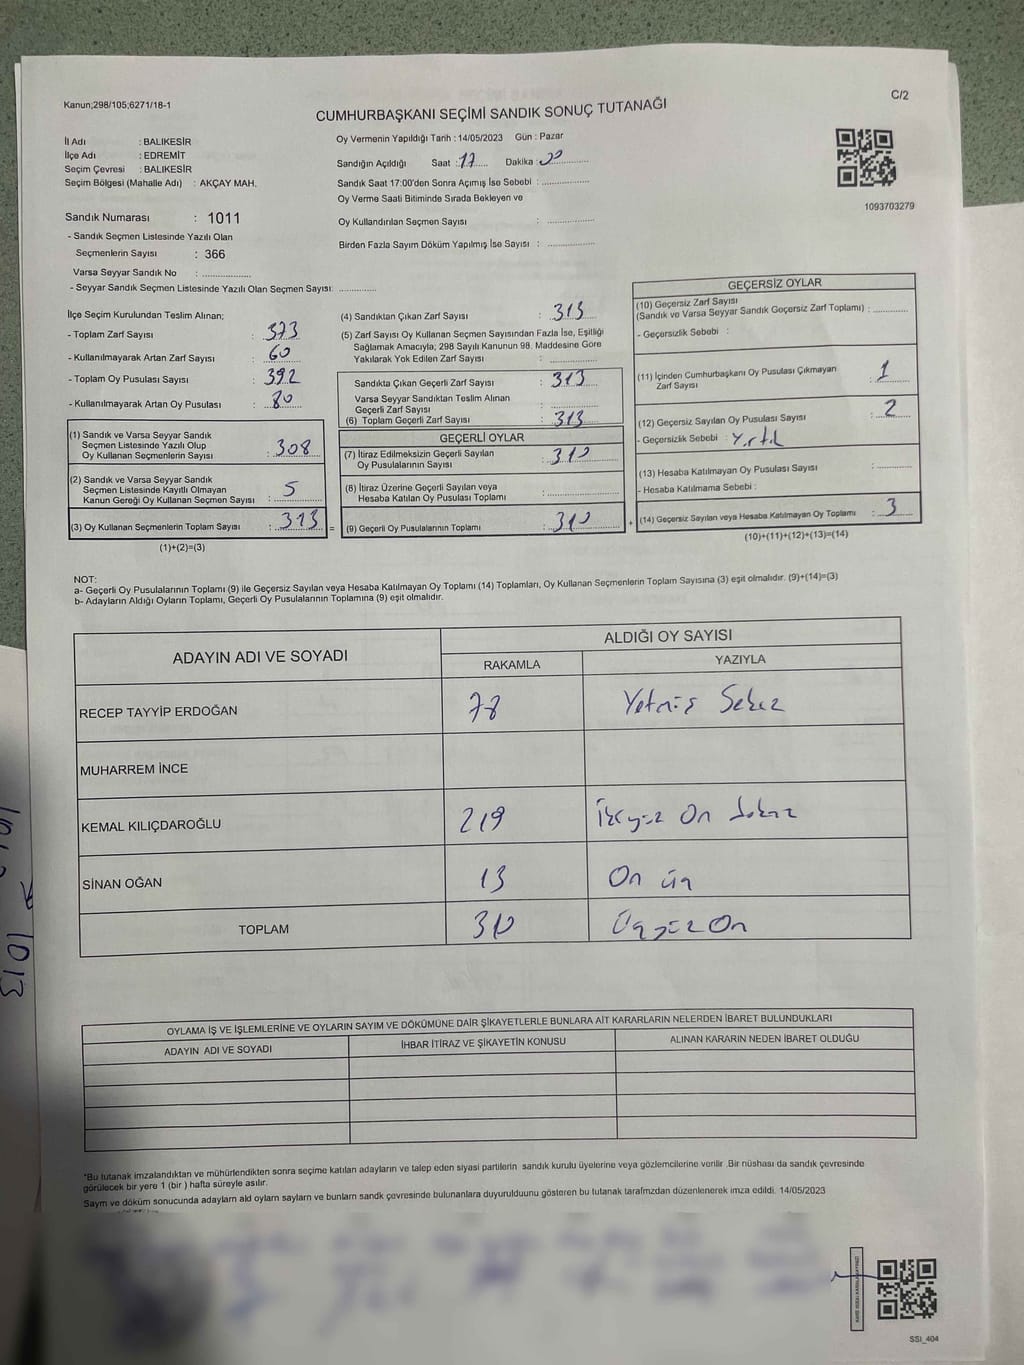 Kanun;298/105;6271/18-1
C/2
CUMHURBAŞKANI SEÇİMİ SANDIK SONUÇ TUTANAĞI
İl Adı : BALIKESİR
İlçe Adı : EDREMİT
Seçim Çevresi : BALIKESİR
Seçim Bölgesi (Mahalle Adı) : AKÇAY MAH.
Oy Vermenin Yapıldığı Tarih : 14/05/2023 Gün : Pazar
Sandığın Açıldığı Saat : 17 Dakika : 00
Sandık Saat 17:00'den Sonra Açımış İse Sebebi :
Oy Verme Saati Bitiminde Sırada Bekleyen ve
Oy Kullandırılan Seçmen Sayısı :
Birden Fazla Sayım Döküm Yapılmış İse Sayısı :
1093703279
Sandık Numarası : 1011
- Sandık Seçmen Listesinde Yazılı Olan
Seçmenlerin Sayısı : 366
Varsa Seyyar Sandık No :
- Seyyar Sandık Seçmen Listesinde Yazılı Olan Seçmen Sayısı:
İlçe Seçim Kurulundan Teslim Alınan;
- Toplam Zarf Sayısı : 373
- Kullanılmayarak Artan Zarf Sayısı : 60
- Toplam Oy Pusulası Sayısı : 392
- Kullanılmayarak Artan Oy Pusulası : 80
(1) Sandık ve Varsa Seyyar Sandık
Seçmen Listesinde Yazılı Olup
Oy Kullanan Seçmenlerin Sayısı : 308
(2) Sandık ve Varsa Seyyar Sandık
Seçmen Listesinde Kayıtlı Olmayan
Kanun Gereği Oy Kullanan Seçmen Sayısı : 5
(3) Oy Kullanan Seçmenlerin Toplam Sayısı : 313
(1)+(2)=(3)
(4) Sandıktan Çıkan Zarf Sayısı : 313
(5) Zarf Sayısı Oy Kullanan Seçmen Sayısından Fazla İse, Eşitliği
Sağlamak Amacıyla; 298 Sayılı Kanunun 98. Maddesine Göre
Yakılarak Yok Edilen Zarf Sayısı :
Sandıkta Çıkan Geçerli Zarf Sayısı : 313
Varsa Seyyar Sandıktan Teslim Alınan
Geçerli Zarf Sayısı :
(6) Toplam Geçerli Zarf Sayısı : 313
GEÇERLİ OYLAR
(7) İtiraz Edilmeksizin Geçerli Sayılan
Oy Pusulalarının Sayısı : 310
(8) İtiraz Üzerine Geçerli Sayılan veya
Hesaba Katılan Oy Pusulası Toplamı :
= (9) Geçerli Oy Pusulalarının Toplamı : 310
GEÇERSİZ OYLAR
(10) Geçersiz Zarf Sayısı
(Sandık ve Varsa Seyyar Sandık Geçersiz Zarf Toplamı) :
- Geçersizlik Sebebi :
(11) İçinden Cumhurbaşkanı Oy Pusulası Çıkmayan
Zarf Sayısı : 1
(12) Geçersiz Sayılan Oy Pusulası Sayısı : 2
- Geçersizlik Sebebi : Yırtık
(13) Hesaba Katılmayan Oy Pusulası Sayısı :
- Hesaba Katılmama Sebebi :
+ (14) Geçersiz Sayılan veya Hesaba Katılmayan Oy Toplamı : 3
(10)+(11)+(12)+(13)=(14)
NOT:
a- Geçerli Oy Pusulalarının Toplamı (9) ile Geçersiz Sayılan veya Hesaba Katılmayan Oy Toplamı (14) Toplamları, Oy Kullanan Seçmenlerin Toplam Sayısına (3) eşit olmalıdır. (9)+(14)=(3)
b- Adayların Aldığı Oyların Toplamı, Geçerli Oy Pusulalarının Toplamına (9) eşit olmalıdır.
ADAYIN ADI VE SOYADI
ALDIĞI OY SAYISI
RAKAMLA YAZIYLA
RECEP TAYYİP ERDOĞAN 78 Yetmiş Sekiz
MUHARREM İNCE
KEMAL KILIÇDAROĞLU 219 İkiyüz On dokuz
SİNAN OĞAN 13 On üç
TOPLAM 310 Üçyüz On
OYLAMA İŞ VE İŞLEMLERİNE VE OYLARIN SAYIM VE DÖKÜMÜNE DAİR ŞİKAYETLERLE BUNLARA AİT KARARLARIN NELERDEN İBARET BULUNDUKLARI
ADAYIN ADI VE SOYADI İHBAR İTİRAZ VE ŞİKAYETİN KONUSU ALINAN KARARIN NEDEN İBARET OLDUĞU
*Bu tutanak imzalandıktan ve mühürlendikten sonra seçime katılan adayların ve talep eden siyasi partilerin sandık kurulu üyelerine veya gözlemcilerine verilir .Bir nüshası da sandık çevresinde
görülecek bir yere 1 (bir ) hafta süreyle asılır.
Sayım ve döküm sonucunda adayların ald oyların sayları ve bunların sandk çevresinde bulunanlara duyurulduunu gösteren bu tutanak tarafmzdan düzenlenerek imza edildi. 14/05/2023
SSI_404
1013